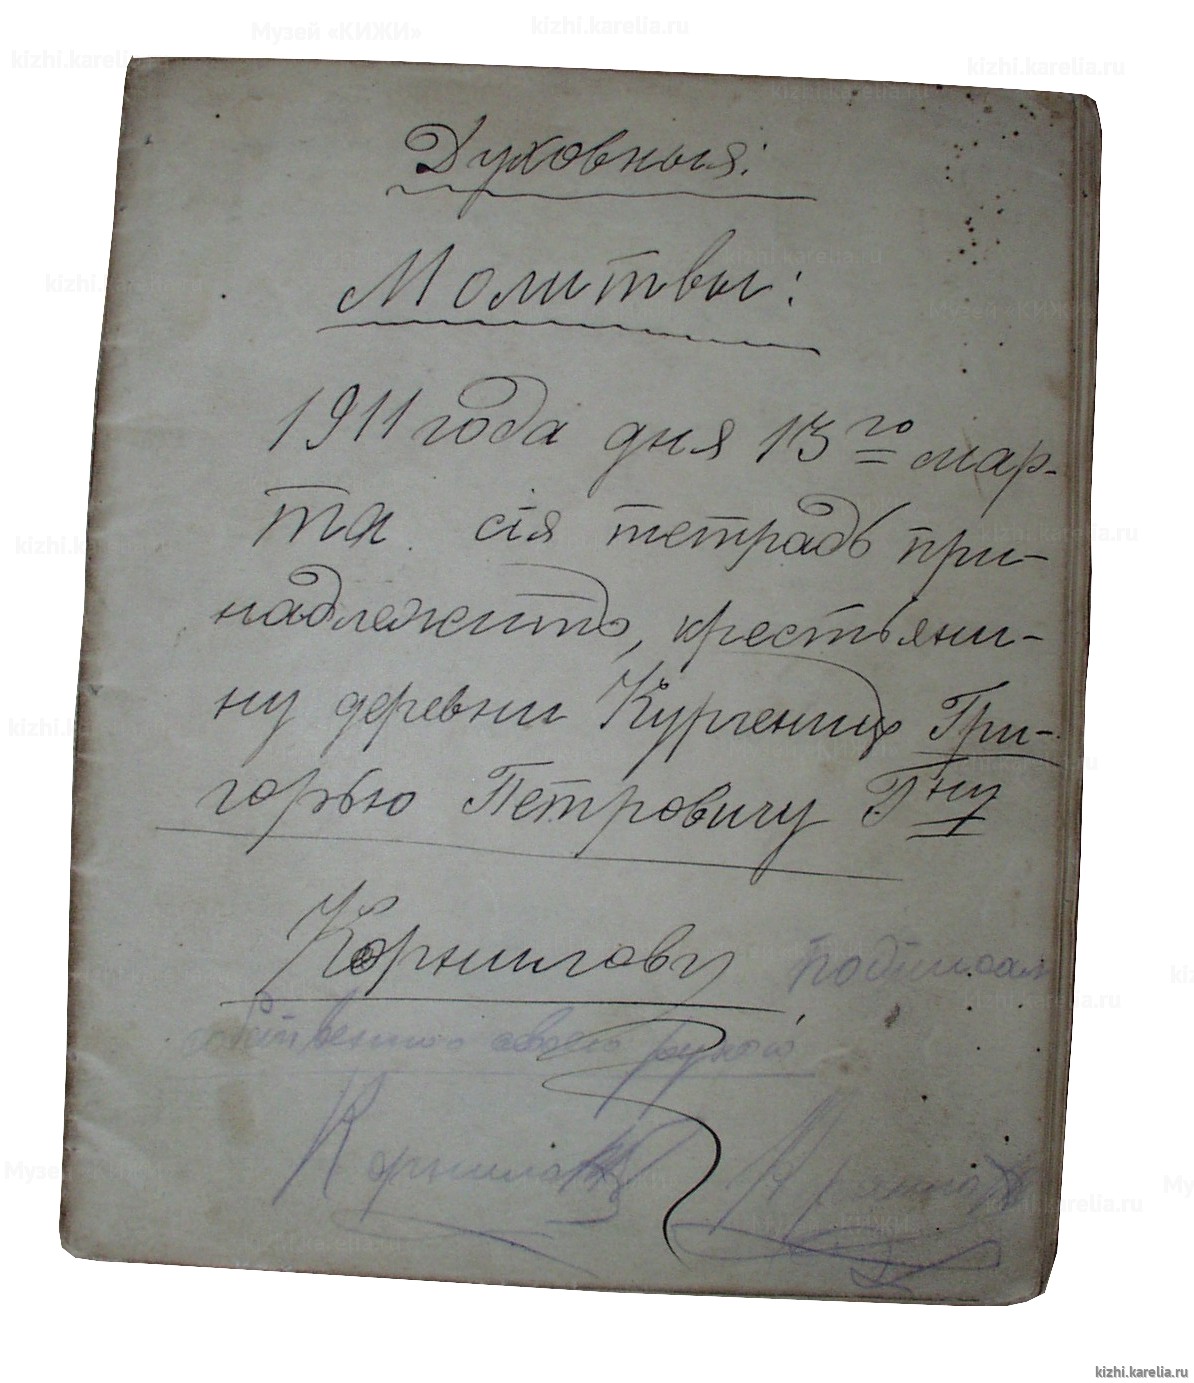 Духовныя:
Молитвы:
1911 года дня 13го мар-
та. сія тетрадь при-
надлежитъ, крестьяни-
ну деревни Кургениц Гри-
горью Петровичу Гну
Корнилову подписал
собственно своею рукой
Корнилов
kizhi.karelia.ru